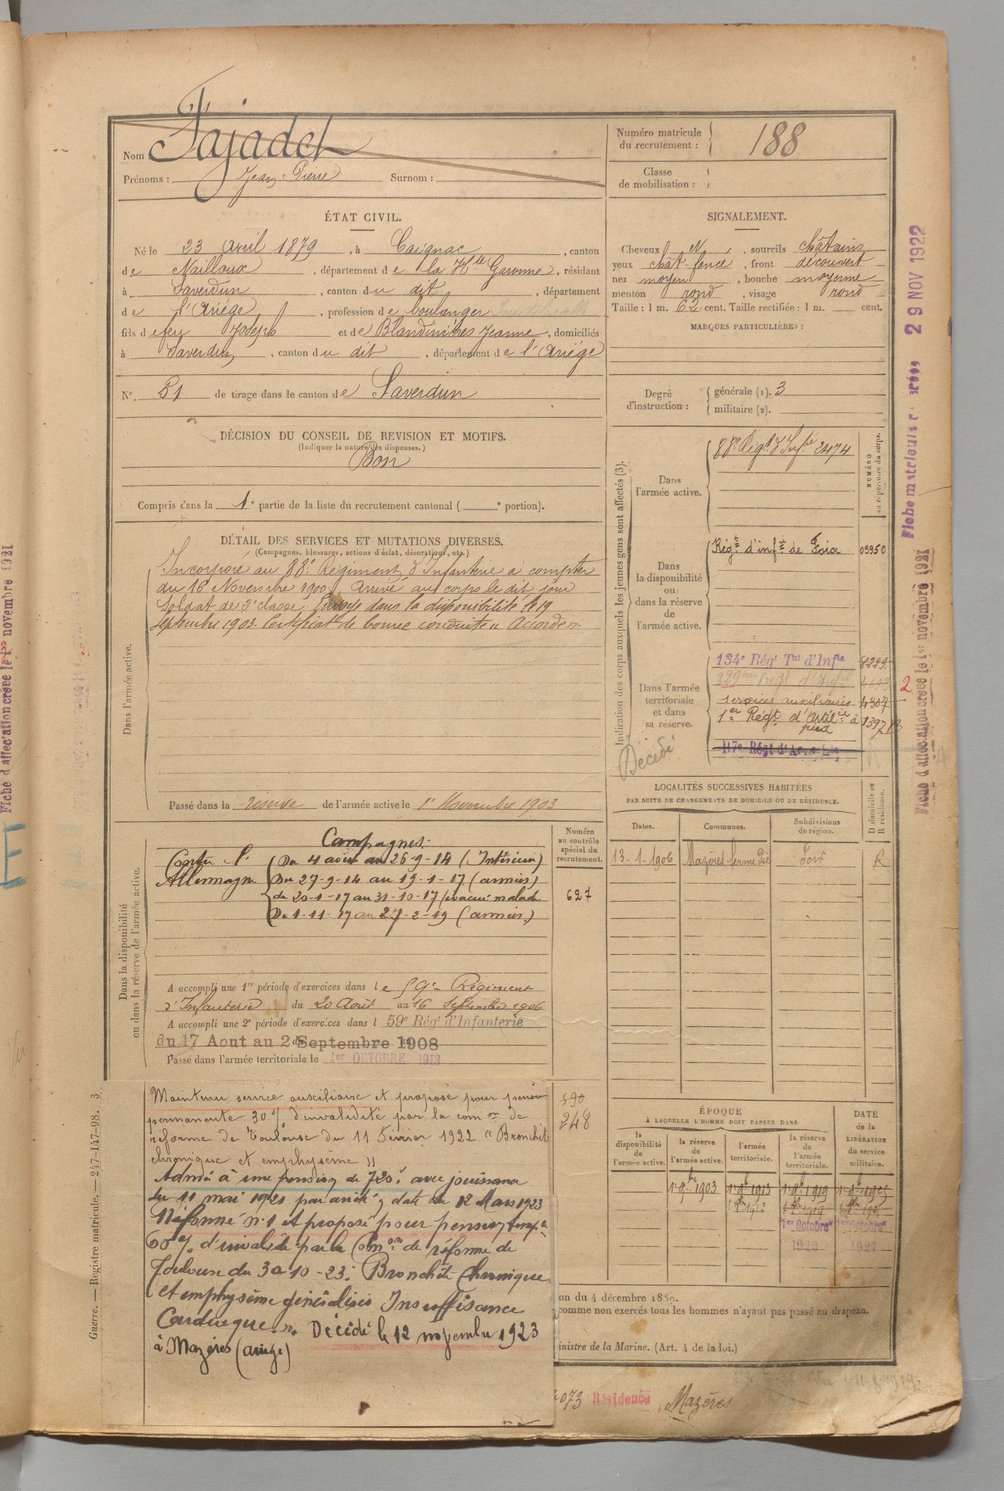 Nom Fajadet
Prénoms : Jean-Pierre Surnom :
Numéro matricule du recrutement : 188
Classe de mobilisation :
ÉTAT CIVIL.
Né le 23 Avril 1879, à Caignac, canton
de Nailloux, département de la Hte Garonne, résidant
à Saverdun, canton du dit, département
de l'Ariège, profession de boulanger
fils de feu Joseph et de Blandinières Jeanne, domiciliés
à Saverdun, canton du dit, département de l'Ariège
N° 51 de tirage dans le canton de Saverdun
SIGNALEMENT.
Cheveux N, sourcils châtains
yeux chât-foncé, front découvert
nez moyen, bouche moyenne
menton rond, visage rond
Taille : 1 m. 62 cent. Taille rectifiée : 1 m. cent.
MARQUES PARTICULIÈRES :
Degré d'instruction : générale (1). 3
militaire (2).
DÉCISION DU CONSEIL DE REVISION ET MOTIFS.
(Indiquer la nature des dispenses.)
Bon
Compris dans la 1e partie de la liste du recrutement cantonal ( e portion).
DÉTAIL DES SERVICES ET MUTATIONS DIVERSES.
(Campagnes, blessures, actions d'éclat, décorations, etc.)
Dans l'armée active.
Incorporé au 88e Régiment d'Infanterie à compter
du 16 Novembre 1900. Arrivé au corps le dit jour
Soldat de 2e classe. Envoyé dans la disponibilité le 19
Septembre 1903. Certificat de bonne conduite "Accordé".
Passé dans la réserve de l'armée active le 1er Novembre 1903
Indication des corps auxquels les jeunes gens sont affectés (3).
NUMÉRO au répertoire du corps.
Dans l'armée active.
88e Régt d'Infie 2474
Dans la disponibilité ou dans la réserve de l'armée active.
Régt d'infie de Foix 09950
Dans l'armée territoriale et dans sa réserve.
134e Régt Tal d'Infie
services auxiliaires 4307
1er Régt d'Artilie à pied 1397
117e Régt d'A
2
Décédé
LOCALITÉS SUCCESSIVES HABITÉES
PAR SUITE DE CHANGEMENTS DE DOMICILE OU DE RÉSIDENCE.
Dates. Communes. Subdivisions de région. D domicile ou R résidence.
13-1-1906 Mazères Foix R
Dans la disponibilité ou dans la réserve de l'armée active.
Numéro au contrôle spécial du recrutement.
627
Campagnes:
Contre l' Du 4 août au 26-9-14 (Intérieur)
Allemagne Du 27-9-14 au 19-1-17 (armées)
du 20-1-17 au 31-10-17 (évacué malade
Du 1-11-17 au 27-2-19 (armées)
A accompli une 1re période d'exercices dans le 59e Régiment
d'Infanterie du 20 Août au 16 Septembre 1906
A accompli une 2e période d'exercices dans l 59e Régt d'Infanterie
du 17 Aout au 2 Septembre 1908
Passé dans l'armée territoriale le 1er OCTOBRE 1913
590
248
Maintenu service auxiliaire et proposé pour pension
permanente 30% d'invalidité par la comon de
réforme de Toulouse du 11 février 1922 "Bronchite
chronique et emphysème"
Admis à une pension de 720f avec jouissance
du 11 mai 1921 par arrêté, date du 12 Mars 1923
Réformé n°1 et proposé pour pension tempre
60% d'invalidité par la Comon de réforme de
Toulouse du 30-10-23: Bronchite Chronique
et emphysème généralisés Insuffisance
Cardiaque". Décédé le 12 novembre 1923
à Mazères (ariège)
ÉPOQUE
À LAQUELLE L'HOMME DOIT PASSER DANS
DATE DE LA LIBÉRATION du service militaire.
la disponibilité de l'armée active.
la réserve de l'armée active.
l'armée territoriale.
la réserve de l'armée territoriale.
1er Octobre
on du 4 décembre 1889.
comme non exercés tous les hommes n'ayant pas passé au drapeau.
inistre de la Marine. (Art. 4 de la loi.)
073 Résidence Mazères
Guerre. — Registre matricule. — 247-147-98. 3
Fiche matricule créée 29 NOV 1922
Fiche d'affectation créée le 1er novembre 1921
Fiche d'affectation créée le 1er novembre 1921